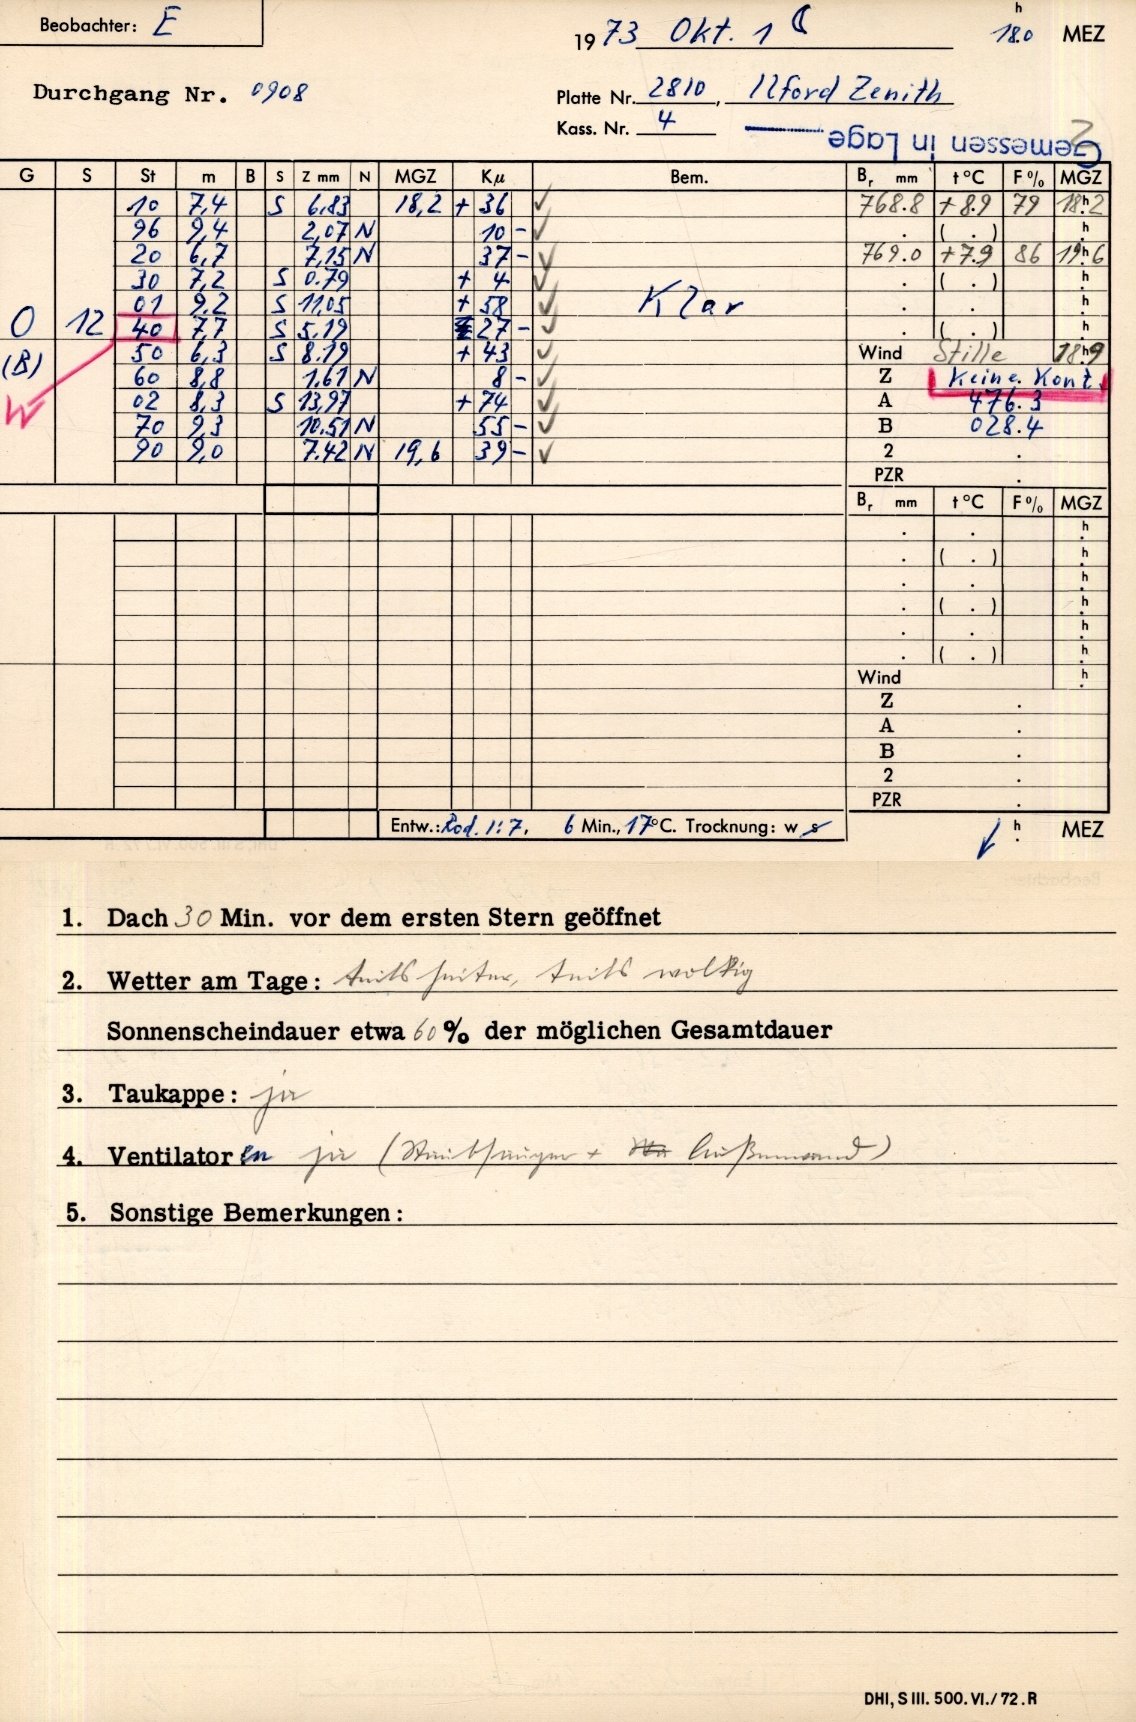 Beobachter: E
1973 Okt. 1 18.0 h MEZ
Durchgang Nr. 0908
Platte Nr. 2810, Ilford Zenith
Kass. Nr. 4
Gemessen in Lage 2
G S St m B S Z mm N MGZ Kμ Bem. Br mm t °C F % MGZ
10 7,4 S 6.83 18,2 + 36 ✓ 768.8 + 8.9 79 18h.2
96 9,4 2,07 N 10 - ✓ . ( . ) h.
20 6,7 7,15 N 37 - ✓ 769.0 + 7.9 86 19h.6
30 7,2 S 0.79 + 4 ✓ . ( . ) h.
01 9,2 S 11,05 + 58 ✓ Klar . . h.
O 12 40 7,7 S 5.19 27 - ✓ . ( . ) h.
(B) 50 6,3 S 8.19 + 43 ✓ Wind Stille 18h.9
60 8,8 1,61 N 8 - ✓ Z Keine Kont.
W 02 8,3 S 13,97 + 74 ✓ A 476.3
70 9,3 10.51 N 55 - ✓ B 028.4
90 9,0 7.42 N 19,6 39 - ✓ 2 .
PZR .
Br mm t °C F % MGZ
. . h.
. ( . ) h.
. . h.
. ( . ) h.
. . h.
. ( . ) h.
Wind h.
Z .
A .
B .
2 .
PZR .
Entw.: Rod. 1:7. 6 Min., 17°C. Trocknung: w s h. MEZ
1. Dach 30 Min. vor dem ersten Stern geöffnet
2. Wetter am Tage: teils heiter, teils wolkig
Sonnenscheindauer etwa 60 % der möglichen Gesamtdauer
3. Taukappe: ja
4. Ventilatoren ja (Staubsauger + Außenwand)
5. Sonstige Bemerkungen:
DHI, S III. 500. VI./72.R